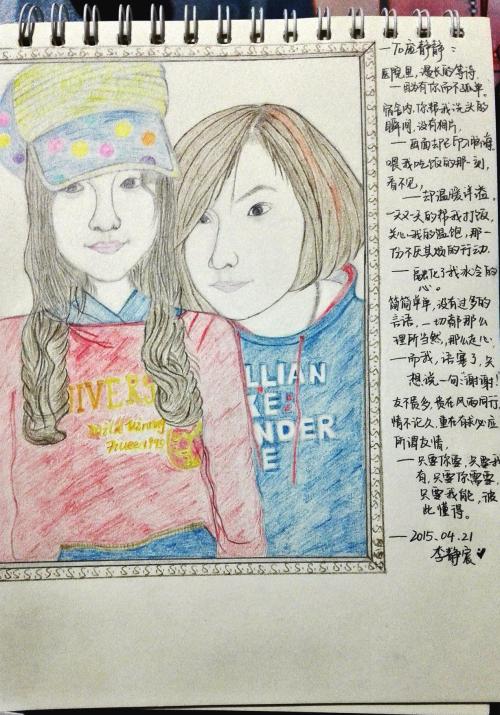 一To应静静：
医院里，漫长的等待，
一因有你而不孤单。
宿舍内，你帮我洗头的
瞬间，没有相片，
一画面却已印脑海。
喂我吃饭的那一刻，
看不见，
一却温暖洋溢。
一次又一次的帮我打饭，
关心我的温饱，那一
份不厌其烦的行动，
一融化了我冰冷的
心。
简简单单，没有过多的
言语，一切都那么
理所当然，那么走心。
一而我，语塞了，只
想说一句：“谢谢”！
友不贵多，贵在风雨同行，
情不论久，重在有求必应
所谓友情，
一只要你要，只要我
有，只要你需要，
只要我能，彼
此懂得。
—2015.04.21
李静宸♥
IVERS
Wild Winning
1995
LLIAN
KE
NDER
E